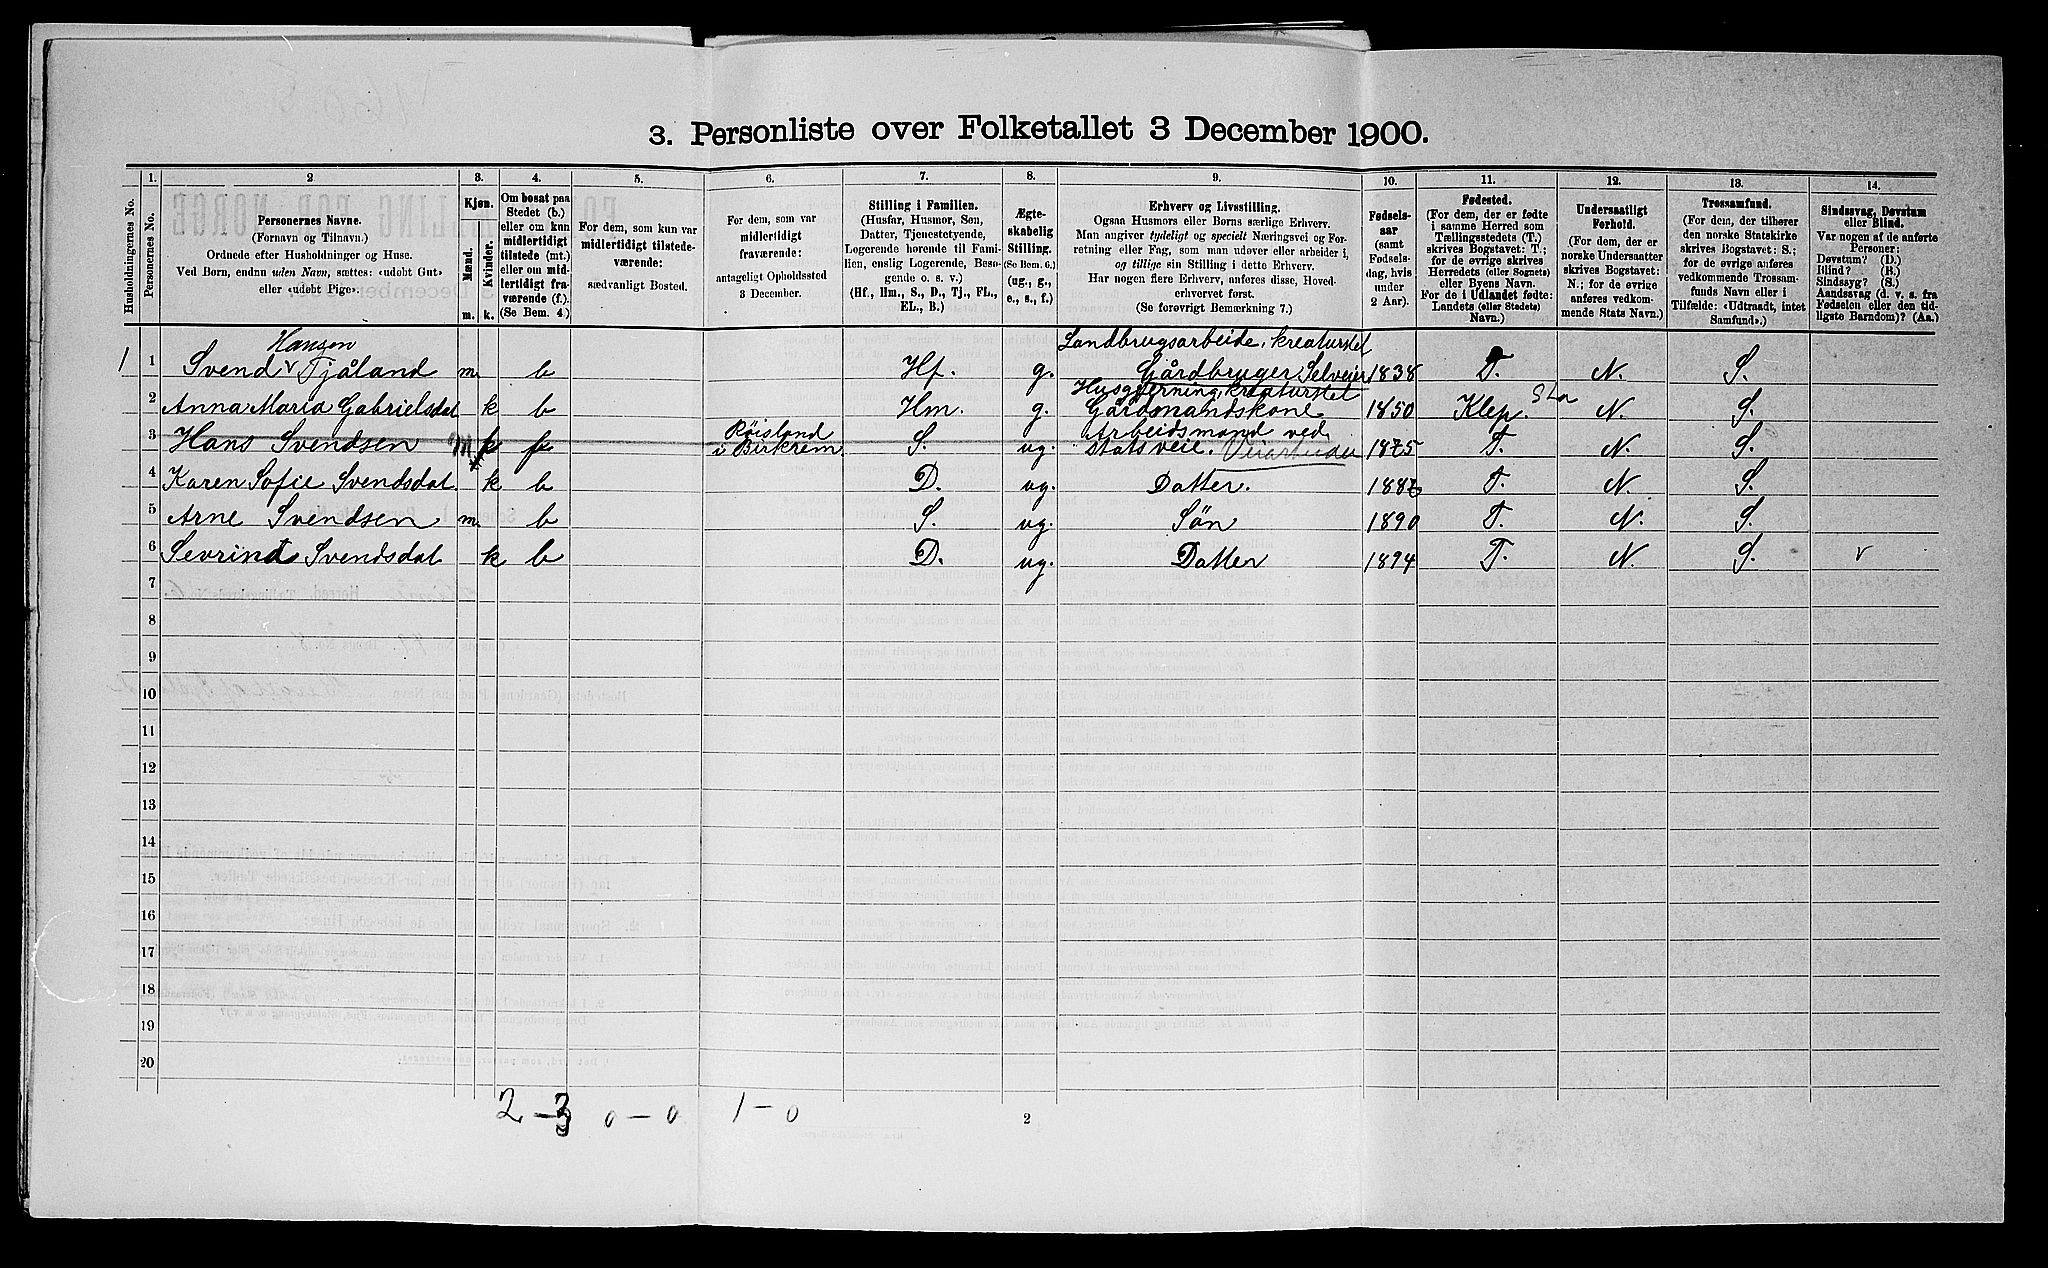 3. Personliste over Folketallet 3 December 1900.
Husholdningernes No.
1.
Personernes No.
2
Personernes Navne.
(Fornavn og Tilnavn.)
Ordnede efter Husholdninger og Huse.
Ved Børn, endnu uden Navn, sættes: «udøbt Gut»
eller «udøbt Pige».
3.
Kjøn.
Mænd.
Kvinder.
m.
k.
4.
Om bosat paa
Stedet (b.)
eller om kun
midlertidigt
tilstede (mt.)
eller om mid-
lertidigt fra-
værende (f.).
(Se Bem. 4.)
5.
For dem, som kun var
midlertidigt tilstede-
værende:
sædvanligt Bosted.
6.
For dem, som var
midlertidigt
fraværende:
antageligt Opholdssted
3 December.
7.
Stilling i Familien.
(Husfar, Husmor, Søn,
Datter, Tjenestetyende,
Logerende hørende til Fami-
lien, enslig Logerende, Besø-
gende o. s. v.)
(Hf., Hm., S., D., Tj., FL.,
EL., B.)
8.
Ægte-
skabelig
Stilling.
(Se Bem. 6.)
(ug., g.,
e., s., f.)
9.
Erhverv og Livsstilling.
Ogsaa Husmors eller Børns særlige Erhverv.
Man angiver tydeligt og specielt Næringsvei og For-
retning eller Fag, som man udøver eller arbeider i,
og tillige sin Stilling i dette Erhverv.
Har nogen flere Erhverv, anføres disse, Hoved-
erhvervet først.
(Se forøvrigt Bemærkning 7.)
10.
Fødsels-
aar
(samt
Fødsels-
dag, hvis
under
2 Aar).
11.
Fødested.
(For dem, der er fødte
i samme Herred som
Tællingsstedets (T.)
skrives Bogstavet: T.;
for de øvrige skrives
Herredets (eller Sognets)
eller Byens Navn.
For de i Udlandet fødte:
Landets (eller Stedets)
Navn.)
12.
Undersaatligt
Forhold.
(For dem, der er
norske Undersaatter
skrives Bogstavet:
N.; for de øvrige
anføres vedkom-
mende Stats Navn.)
13.
Trossamfund.
(For dem, der tilhører
den norske Statskirke
skrives Bogstavet: S.;
for de øvrige anføres
vedkommende Trossam-
funds Navn eller i
Tilfælde: «Udtraadt, intet
Samfund».)
14.
Sindssvag, Døvstum
eller Blind.
Var nogen af de anførte
Personer:
Døvstum? (D.)
Blind? (B.)
Sindssyg? (S.)
Aandssvag (d. v. s. fra
Fødselen eller den tid-
ligste Barndom)? (Aa.)
Hansen Landbrugsarbeide, kreaturstel
1 1 Svend v Tjåland m. b Hf. g. Gårdbruger Selveier 1838 T. N. S.
Husgjerning, kreaturstel
2 Anna Maria Gabrielsdat k b Hm. g. Gårdmandskone 1850 Klep. N. S.
Röisland Arbeidsmand ved
3 Hans Svendsen m k f i Birkrem S. ug. stats veie. Veiarbeider 1875 T. N. S.
4 Karen Sofie Svendsdat. k b D. ug. Datter. T. N. S.
5 Arne Svendsen m. b S. ug. Sön 1890 T. N. S.
6 Svendsdat k b D. ug. Datter 1894 T. N. S. v
7
8
9
10
11
12
13
14
15
16
17
18
19
20
2 - 3 0 - 0 1 - 0
2